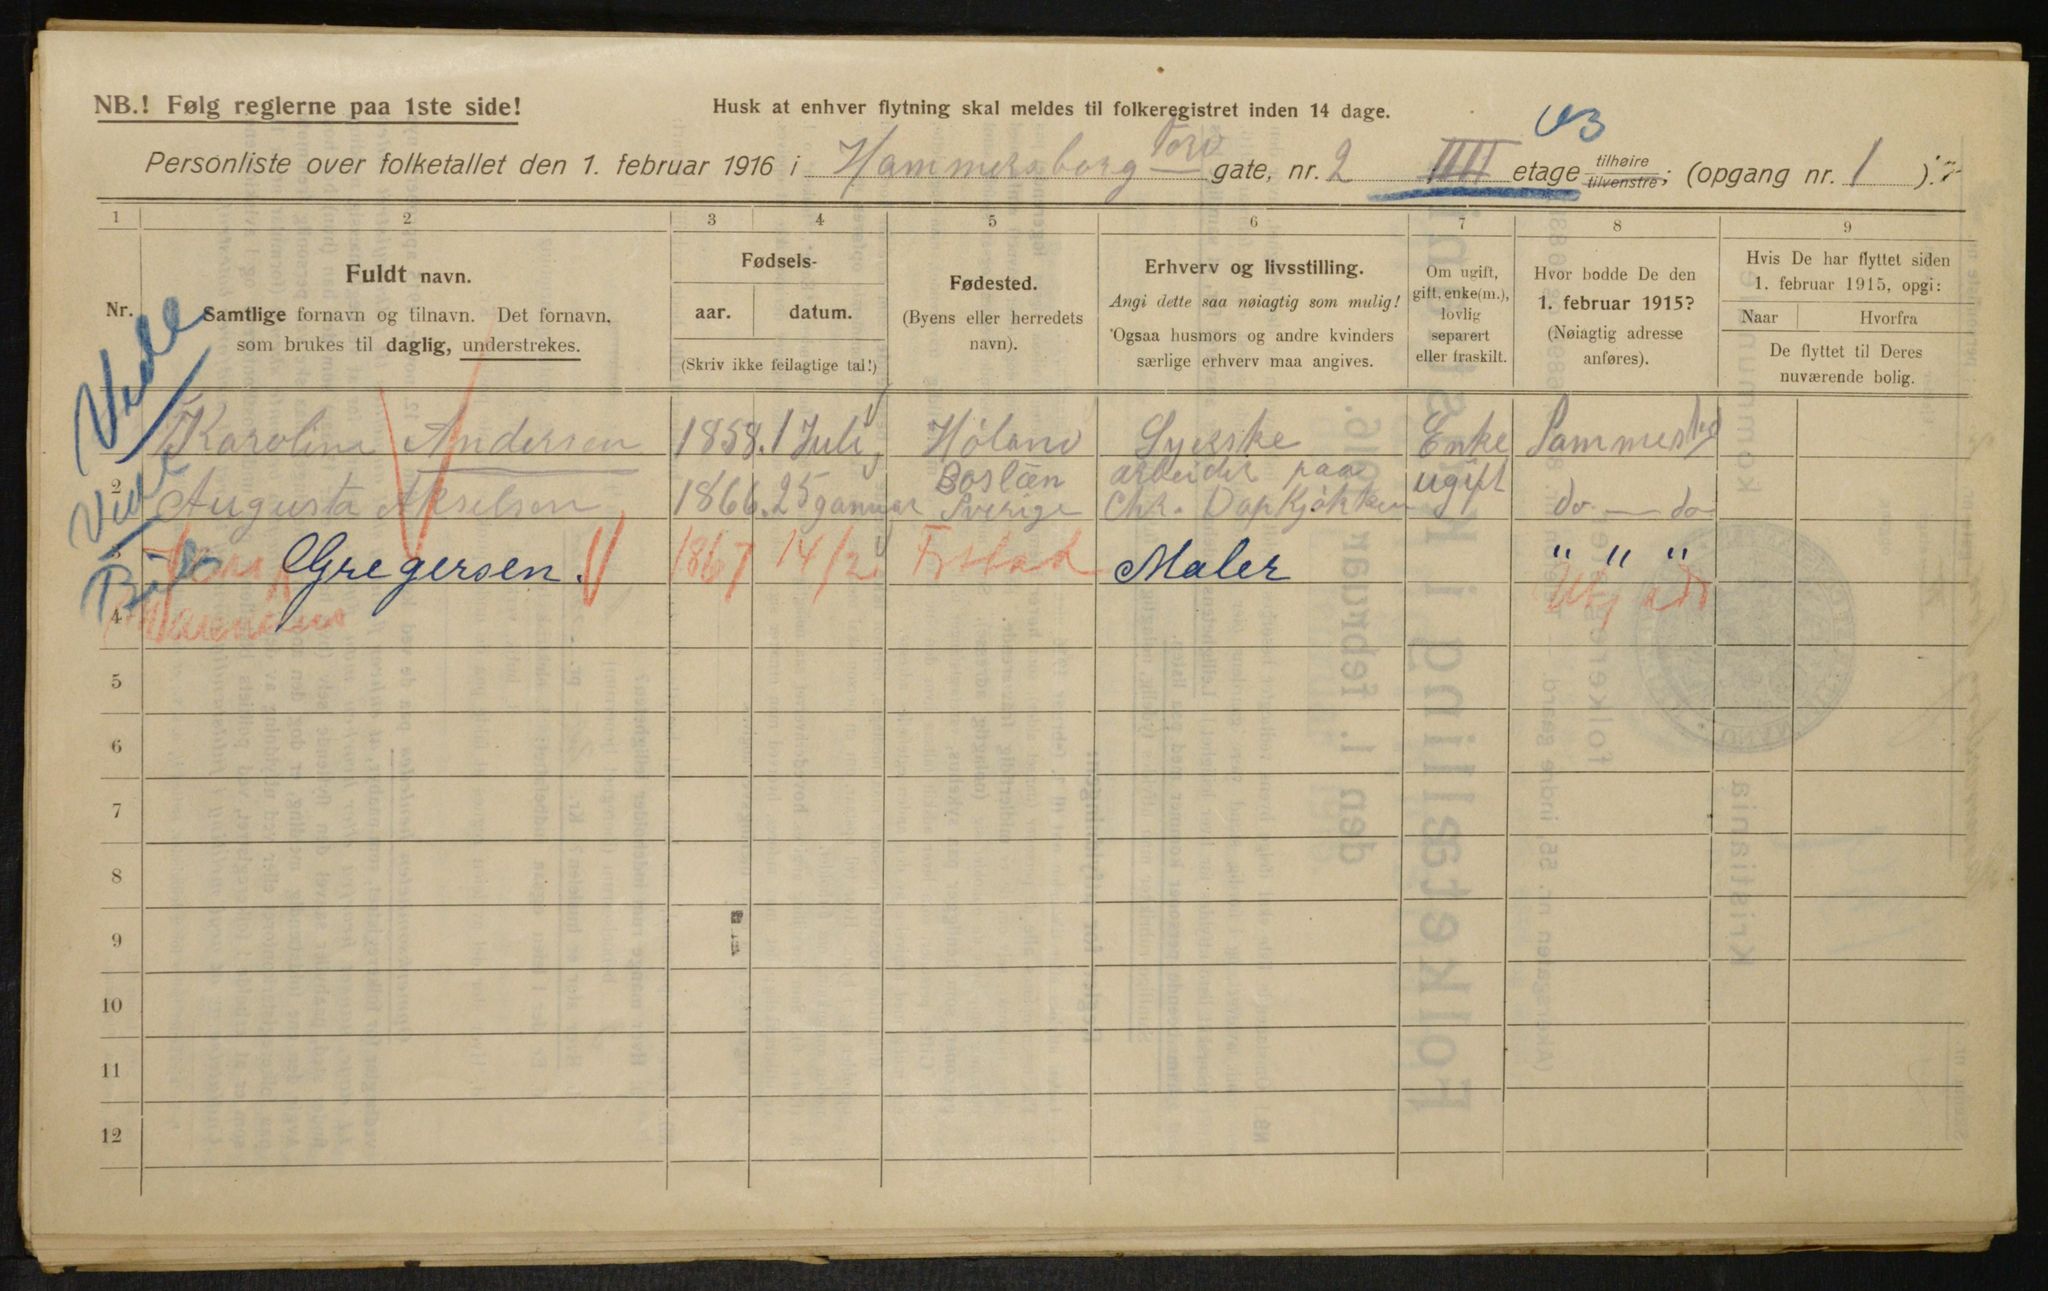 NB.! Følg reglerne paa 1ste side!
Husk at enhver flytning skal meldes til folkeregistret inden 14 dage.
Personliste over folketallet den 1. februar 1916 i Hammersborg Torv gate, nr. 2 IIII etage tilhøire tilvenstre; (opgang nr. 1 ).
1 2 3 4 5 6 7 8 9
Nr.
Fuldt navn.
Samtlige fornavn og tilnavn. Det fornavn,
som brukes til daglig, understrekes.
Fødsels-
aar. datum.
(Skriv ikke feilagtige tal!)
Fødested.
(Byens eller herredets
navn).
Erhverv og livsstilling.
Angi dette saa nøiagtig som mulig!
Ogsaa husmors og andre kvinders
særlige erhverv maa angives.
Om ugift,
gift, enke(m.),
lovlig
separert
eller fraskilt.
Hvor bodde De den
1. februar 1915?
(Nøiagtig adresse
anføres).
Hvis De har flyttet siden
1. februar 1915, opgi:
Naar Hvorfra
De flyttet til Deres
nuværende bolig.
Karoline Andersen 1858. 1 Juli Høland Syerske Enke Sammested
2 Augusta Akselsen 1866. 25 januar Boslæn Sverige arbeider paa Chr. Dapkjøkken ugift do — do
3 Gregersen. 1867 14/2 Maler " " "
4
5
6
7
8
9
10
11
12